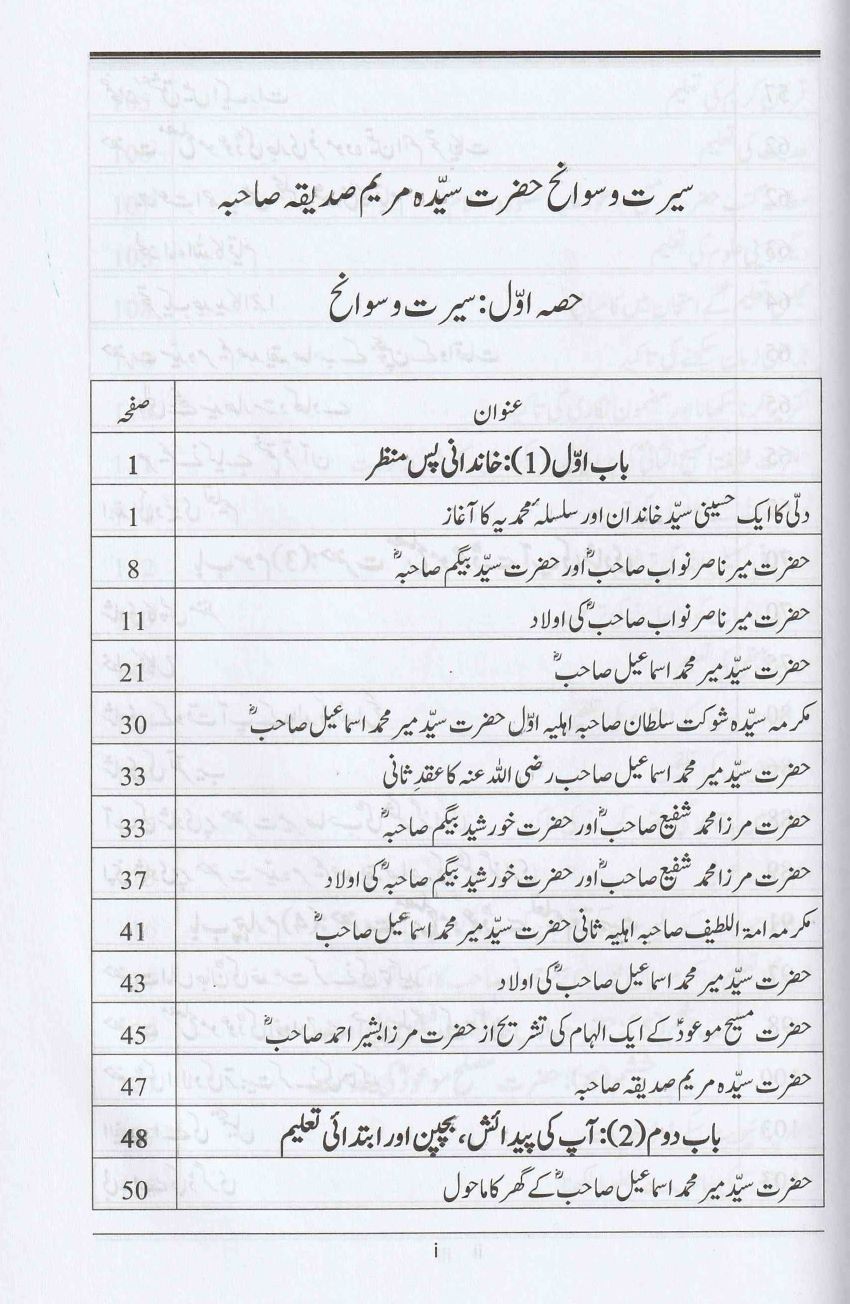 سیرت و سوانح حضرت سیّدہ مریم صدیقہ صاحبہ
حصہ اوّل: سیرت و سوانح
عنوان صفحہ
باب اوّل (1): خاندانی پس منظر 1
دلّی کا ایک حسینی سیّد خاندان اور سلسلۂ محمدیہ کا آغاز 1
حضرت میر ناصر نواب صاحبؓ اور حضرت سیّد بیگم صاحبہؓ 8
حضرت میر ناصر نواب صاحبؓ کی اولاد 11
حضرت سیّد میر محمد اسماعیل صاحبؓ 21
مکرمہ سیّدہ شوکت سلطان صاحبہ اہلیہ اوّل حضرت سیّد میر محمد اسماعیل صاحبؓ 30
حضرت سیّد میر محمد اسماعیل صاحب رضی اللہ عنہ کا عقدِ ثانی 33
حضرت مرزا محمد شفیع صاحبؓ اور حضرت خورشید بیگم صاحبہؓ 33
حضرت مرزا محمد شفیع صاحبؓ اور حضرت خورشید بیگم صاحبہؓ کی اولاد 37
مکرمہ امۃ اللطیف صاحبہ اہلیہ ثانی حضرت سیّد میر محمد اسماعیل صاحبؓ 41
حضرت سیّد میر محمد اسماعیل صاحبؓ کی اولاد 43
حضرت مسیح موعودؑ کے ایک الہام کی تشریح از حضرت مرزا بشیر احمد صاحبؓ 45
حضرت سیّدہ مریم صدیقہ صاحبہ 47
باب دوم (2): آپ کی پیدائش، بچپن اور ابتدائی تعلیم 48
حضرت سیّد میر محمد اسماعیل صاحبؓ کے گھر کا ماحول 50
i